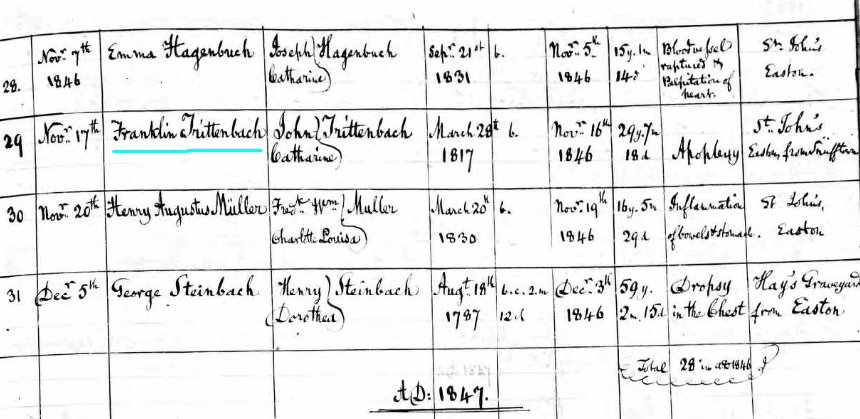 28. Novr. 7th 1846 Emma Hagenbuch Joseph Catharine } Hagenbuch Sepr. 21st 1831 b. Novr. 5th 1846 15y. 1m 14d Bloodvessel ruptured & Palpitation of heart. St. John's Easton.
29 Novr. 17th Franklin Trittenbach John Catharine } Trittenbach March 28th 1817 b. Novr. 16th 1846 29y. 7m 18d Apoplexy St. John's Easton, from Snufftown
30 Novr. 20th Henry Augustus Müller Fredk. Wm. Charlotte Louisa } Muller March 20th 1830 b. Novr. 19th 1846 16y. 5m 29d Inflammation of bowels & stomach. St John's, Easton
31 Decr. 5th George Steinbach Henry Dorothea } Steinbach Augt. 18th 1787 b. c. 2. m 12. d Decr. 3d 1846 59y. 2m. 15d Dropsy in the Chest Hay's Graveyard from Easton
Total 28 in 1846
A,D: 1847.